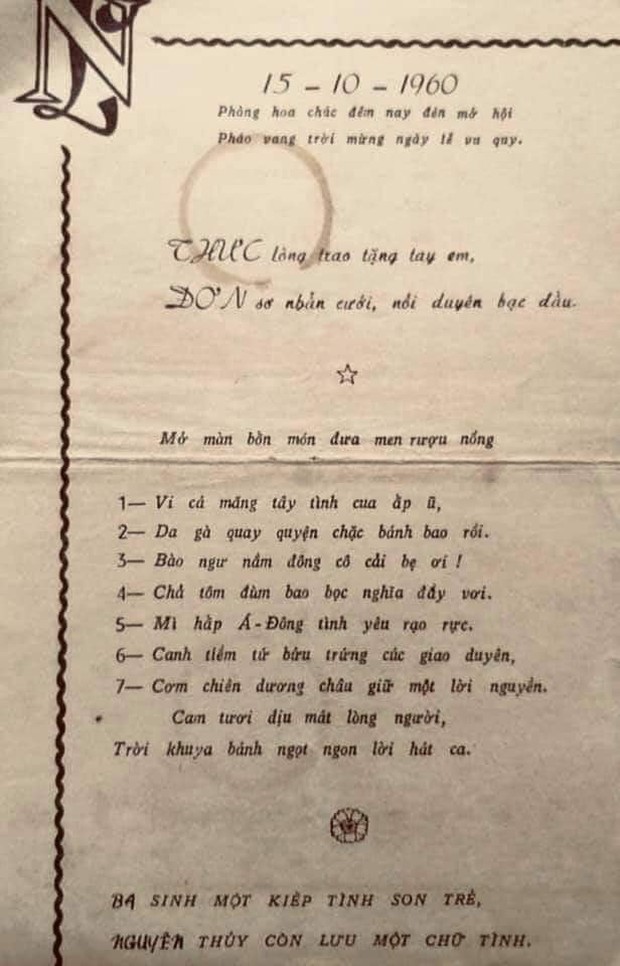 N
15 - 10 - 1960
Phòng hoa chúc đêm nay đèn mở hội
Pháo vang trời mừng ngày lễ vu quy.
THỰC lòng trao tặng tay em,
ĐƠN sơ nhẫn cưới, nối duyên bạc đầu.
Mở màn bốn món đưa men rượu nồng
1— Vi cá măng tây tình cua ấp ủ,
2— Da gà quay quyện chặc bánh bao rồi.
3— Bào ngư nấm đông cô cải bẹ ơi !
4— Chả tôm đùm bao bọc nghĩa đầy vơi.
5— Mì hấp Á-Đông tình yêu rạo rực.
6— Canh tiềm tứ bửu trứng cúc giao duyên,
7— Cơm chiên dương châu giữ một lời nguyền.
Cam tươi dịu mát lòng người,
Trời khuya bánh ngọt ngon lời hát ca.
BA SINH MỘT KIẾP TÌNH SON TRẺ,
NGUYÊN THỦY CÒN LƯU MỘT CHỮ TÌNH.